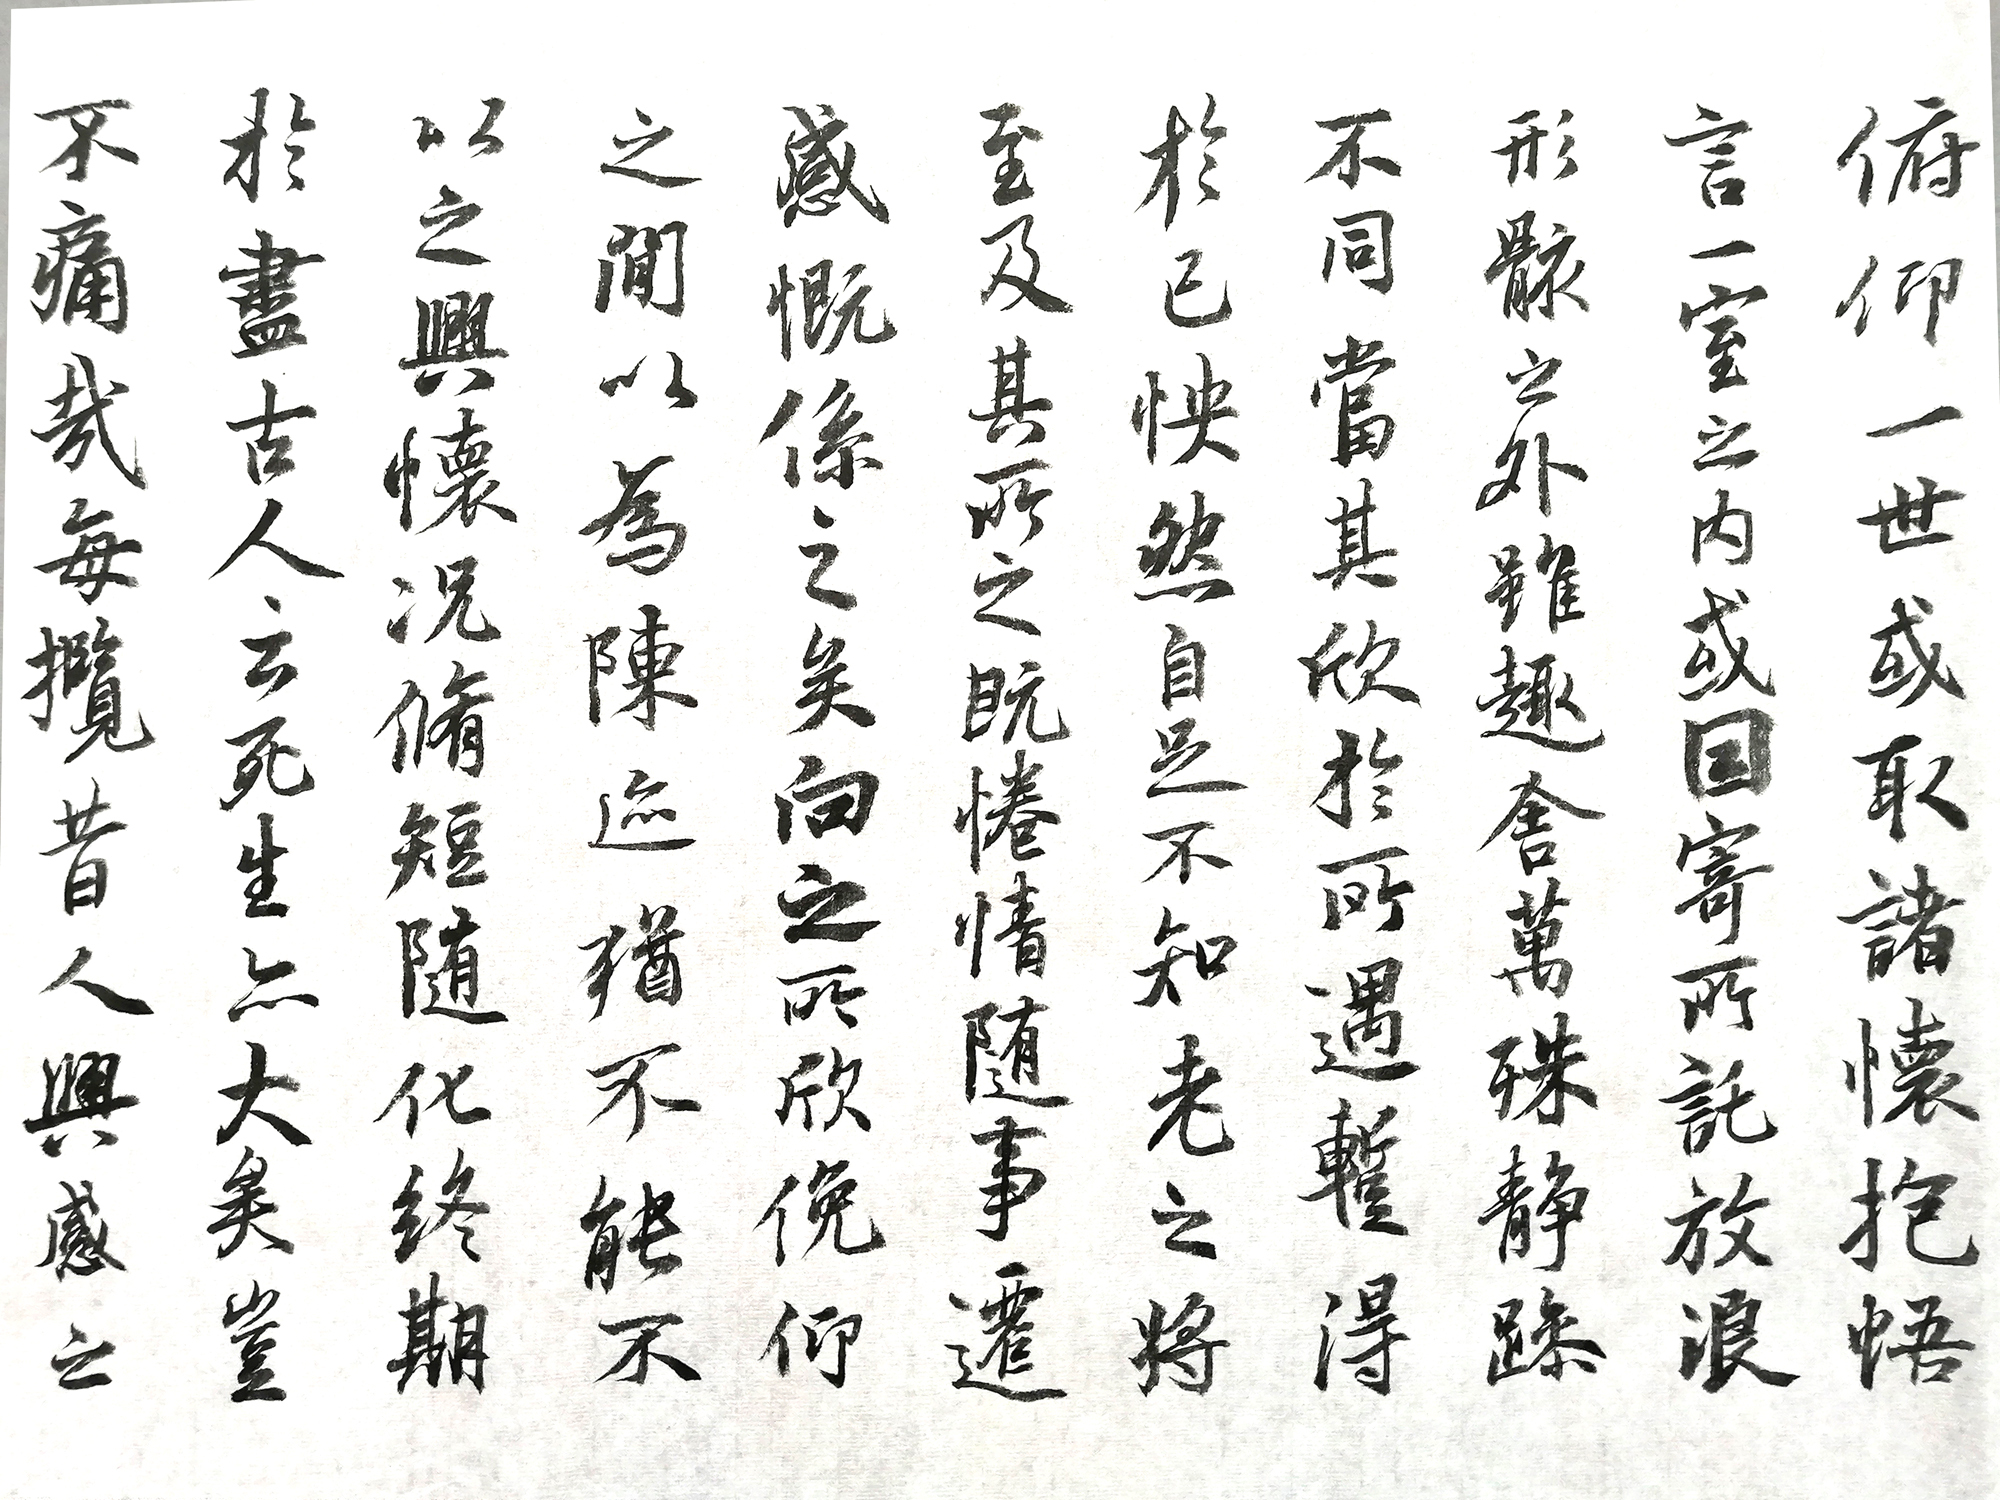 俯仰一世或取諸懷抱悟
言一室之内或因寄所託放浪
形骸之外雖趣舍萬殊静躁
不同當其欣於所遇蹔得
於己怏然自足不知老之將
至及其所之既惓情随事遷
感慨係之矣向之所欣俛仰
之閒以為陳迹猶不能不
以之興懷况脩短随化終期
於盡古人云死生亦大矣豈
不痛哉每攬昔人興感之